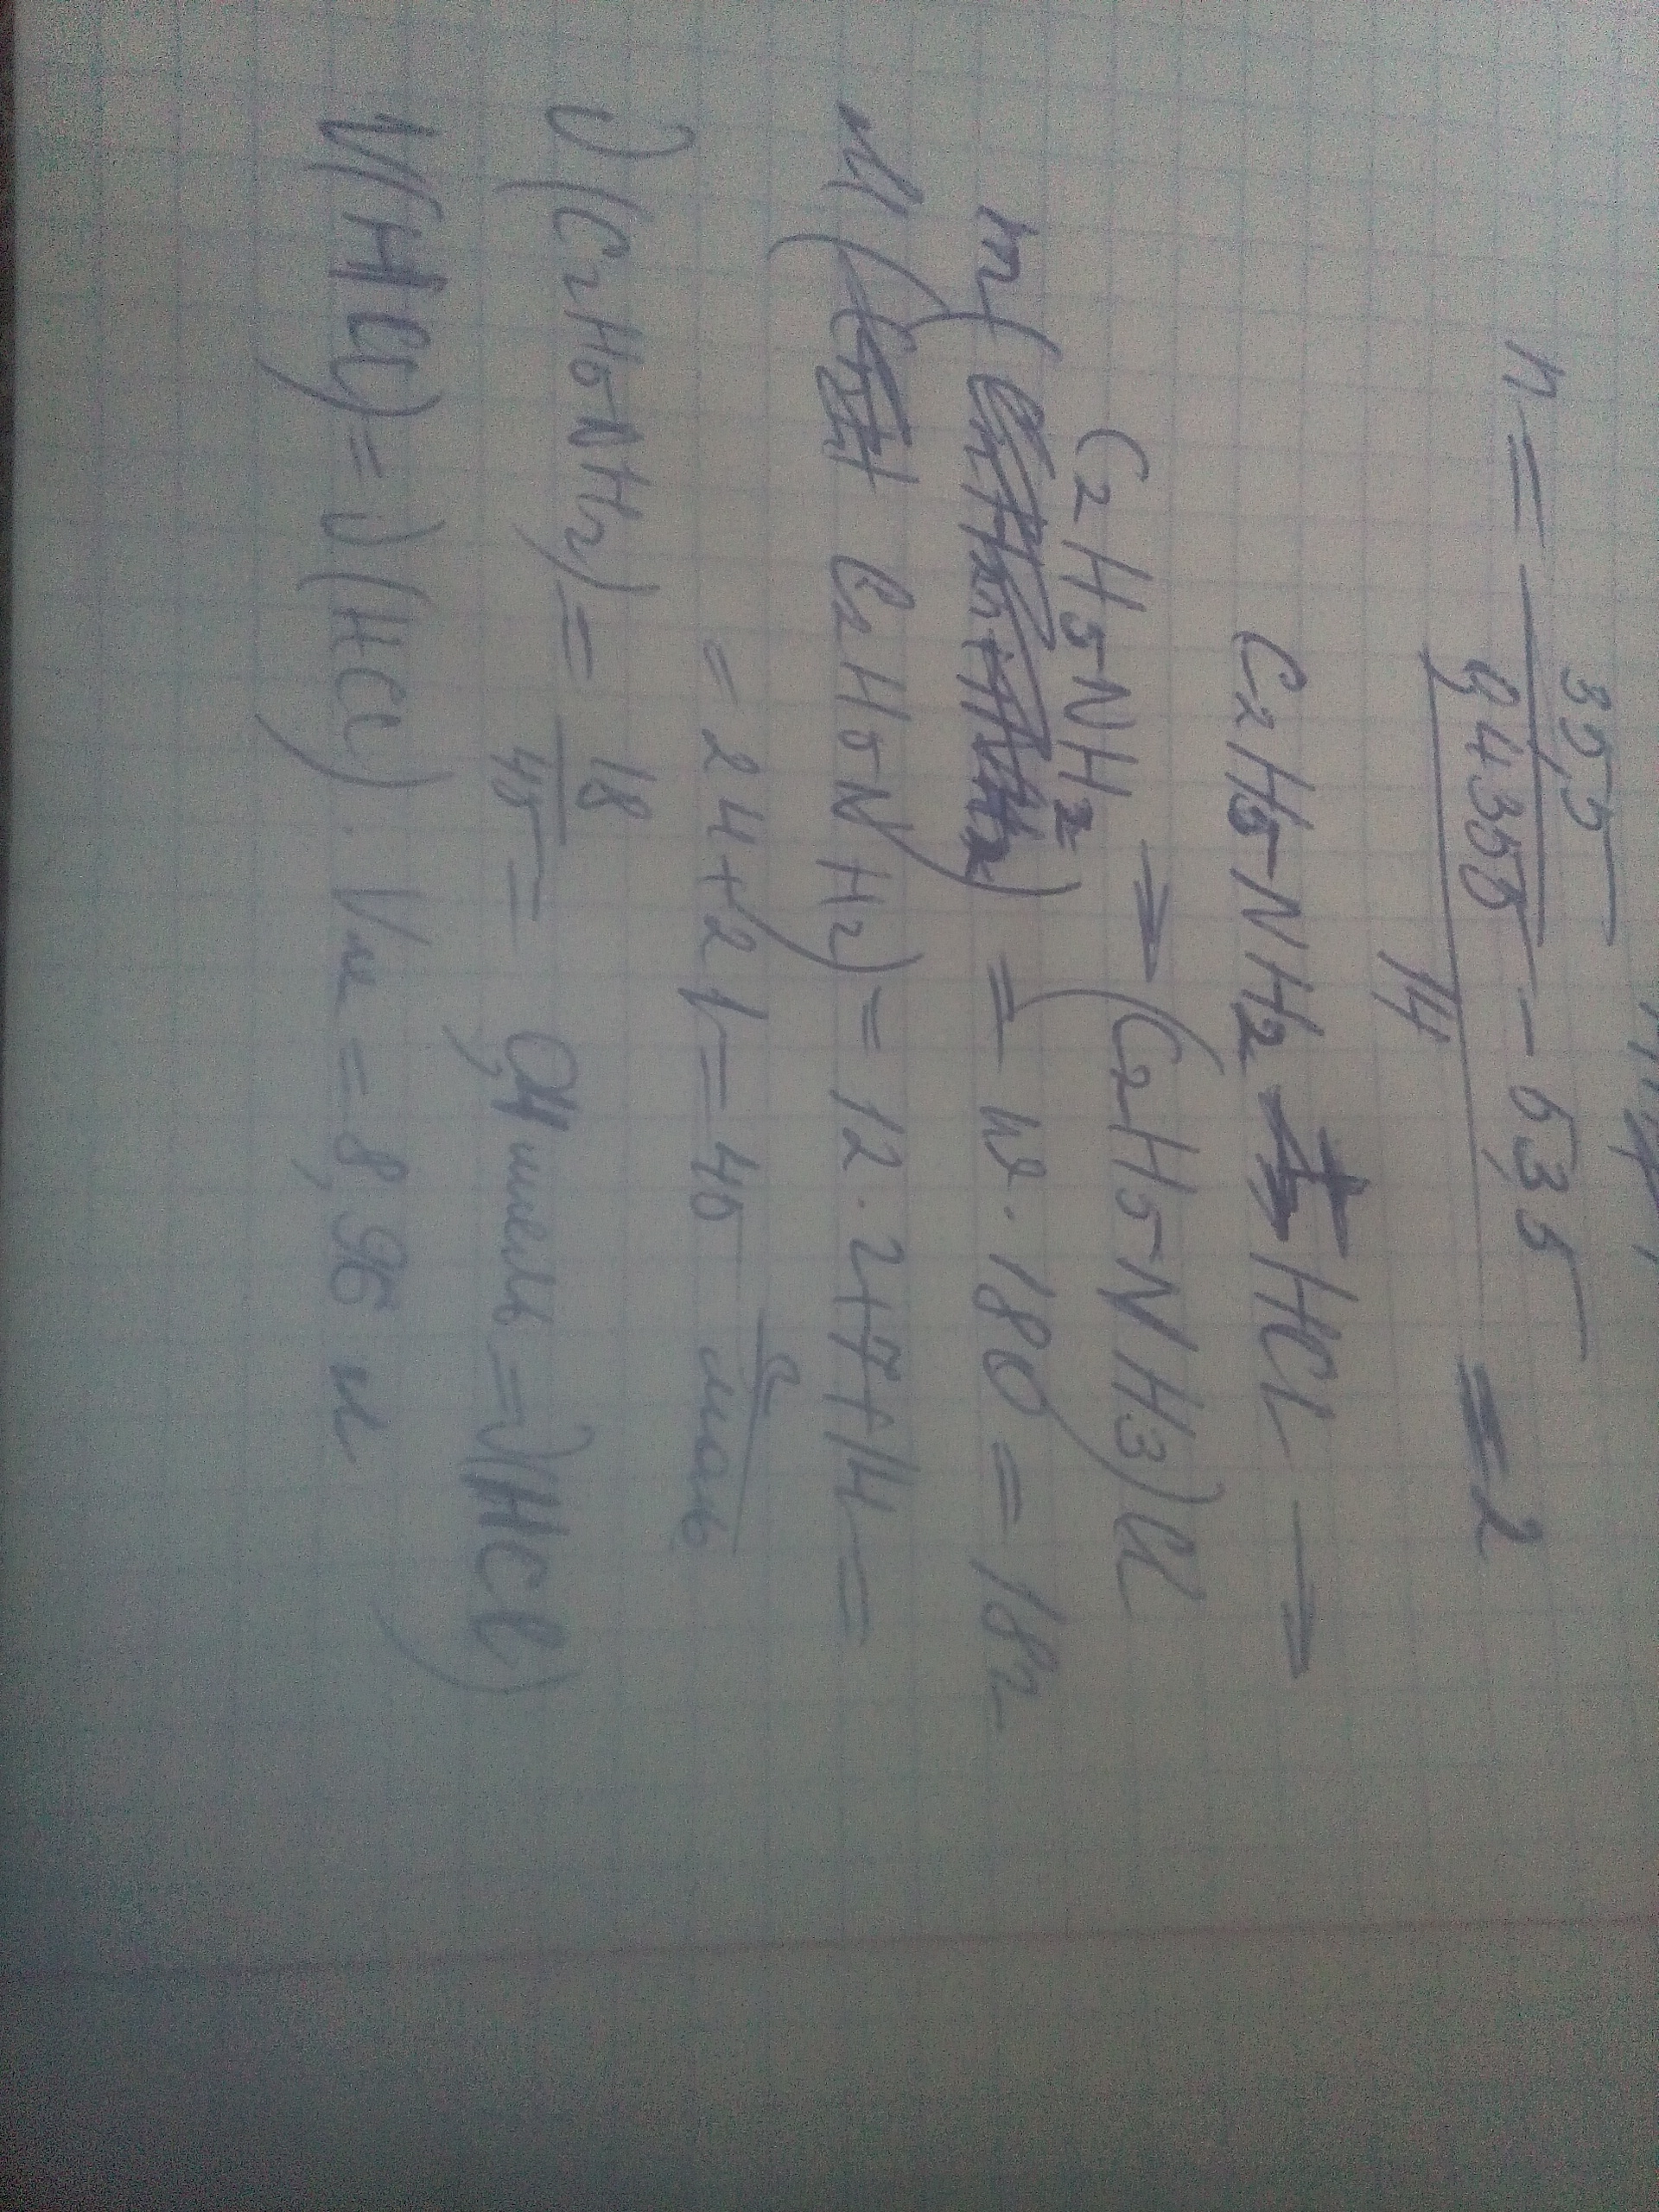 n = 35,5/0,4355 - 53,5 / 14 = 2
C2H5-NH2 + HCl →
C2H5-NH2 → (C2H5-NH3)Cl
m( ) = w · 180 = 18г
M( C2H5-NH2) = 12 · 2+7+14 =
= 24+21 = 45 г/моль
ν(C2H5-NH2) = 18/45 = 0,4 моль = ν(HCl)
V(HCl) = ν(HCl) · Vм = 8,96 л